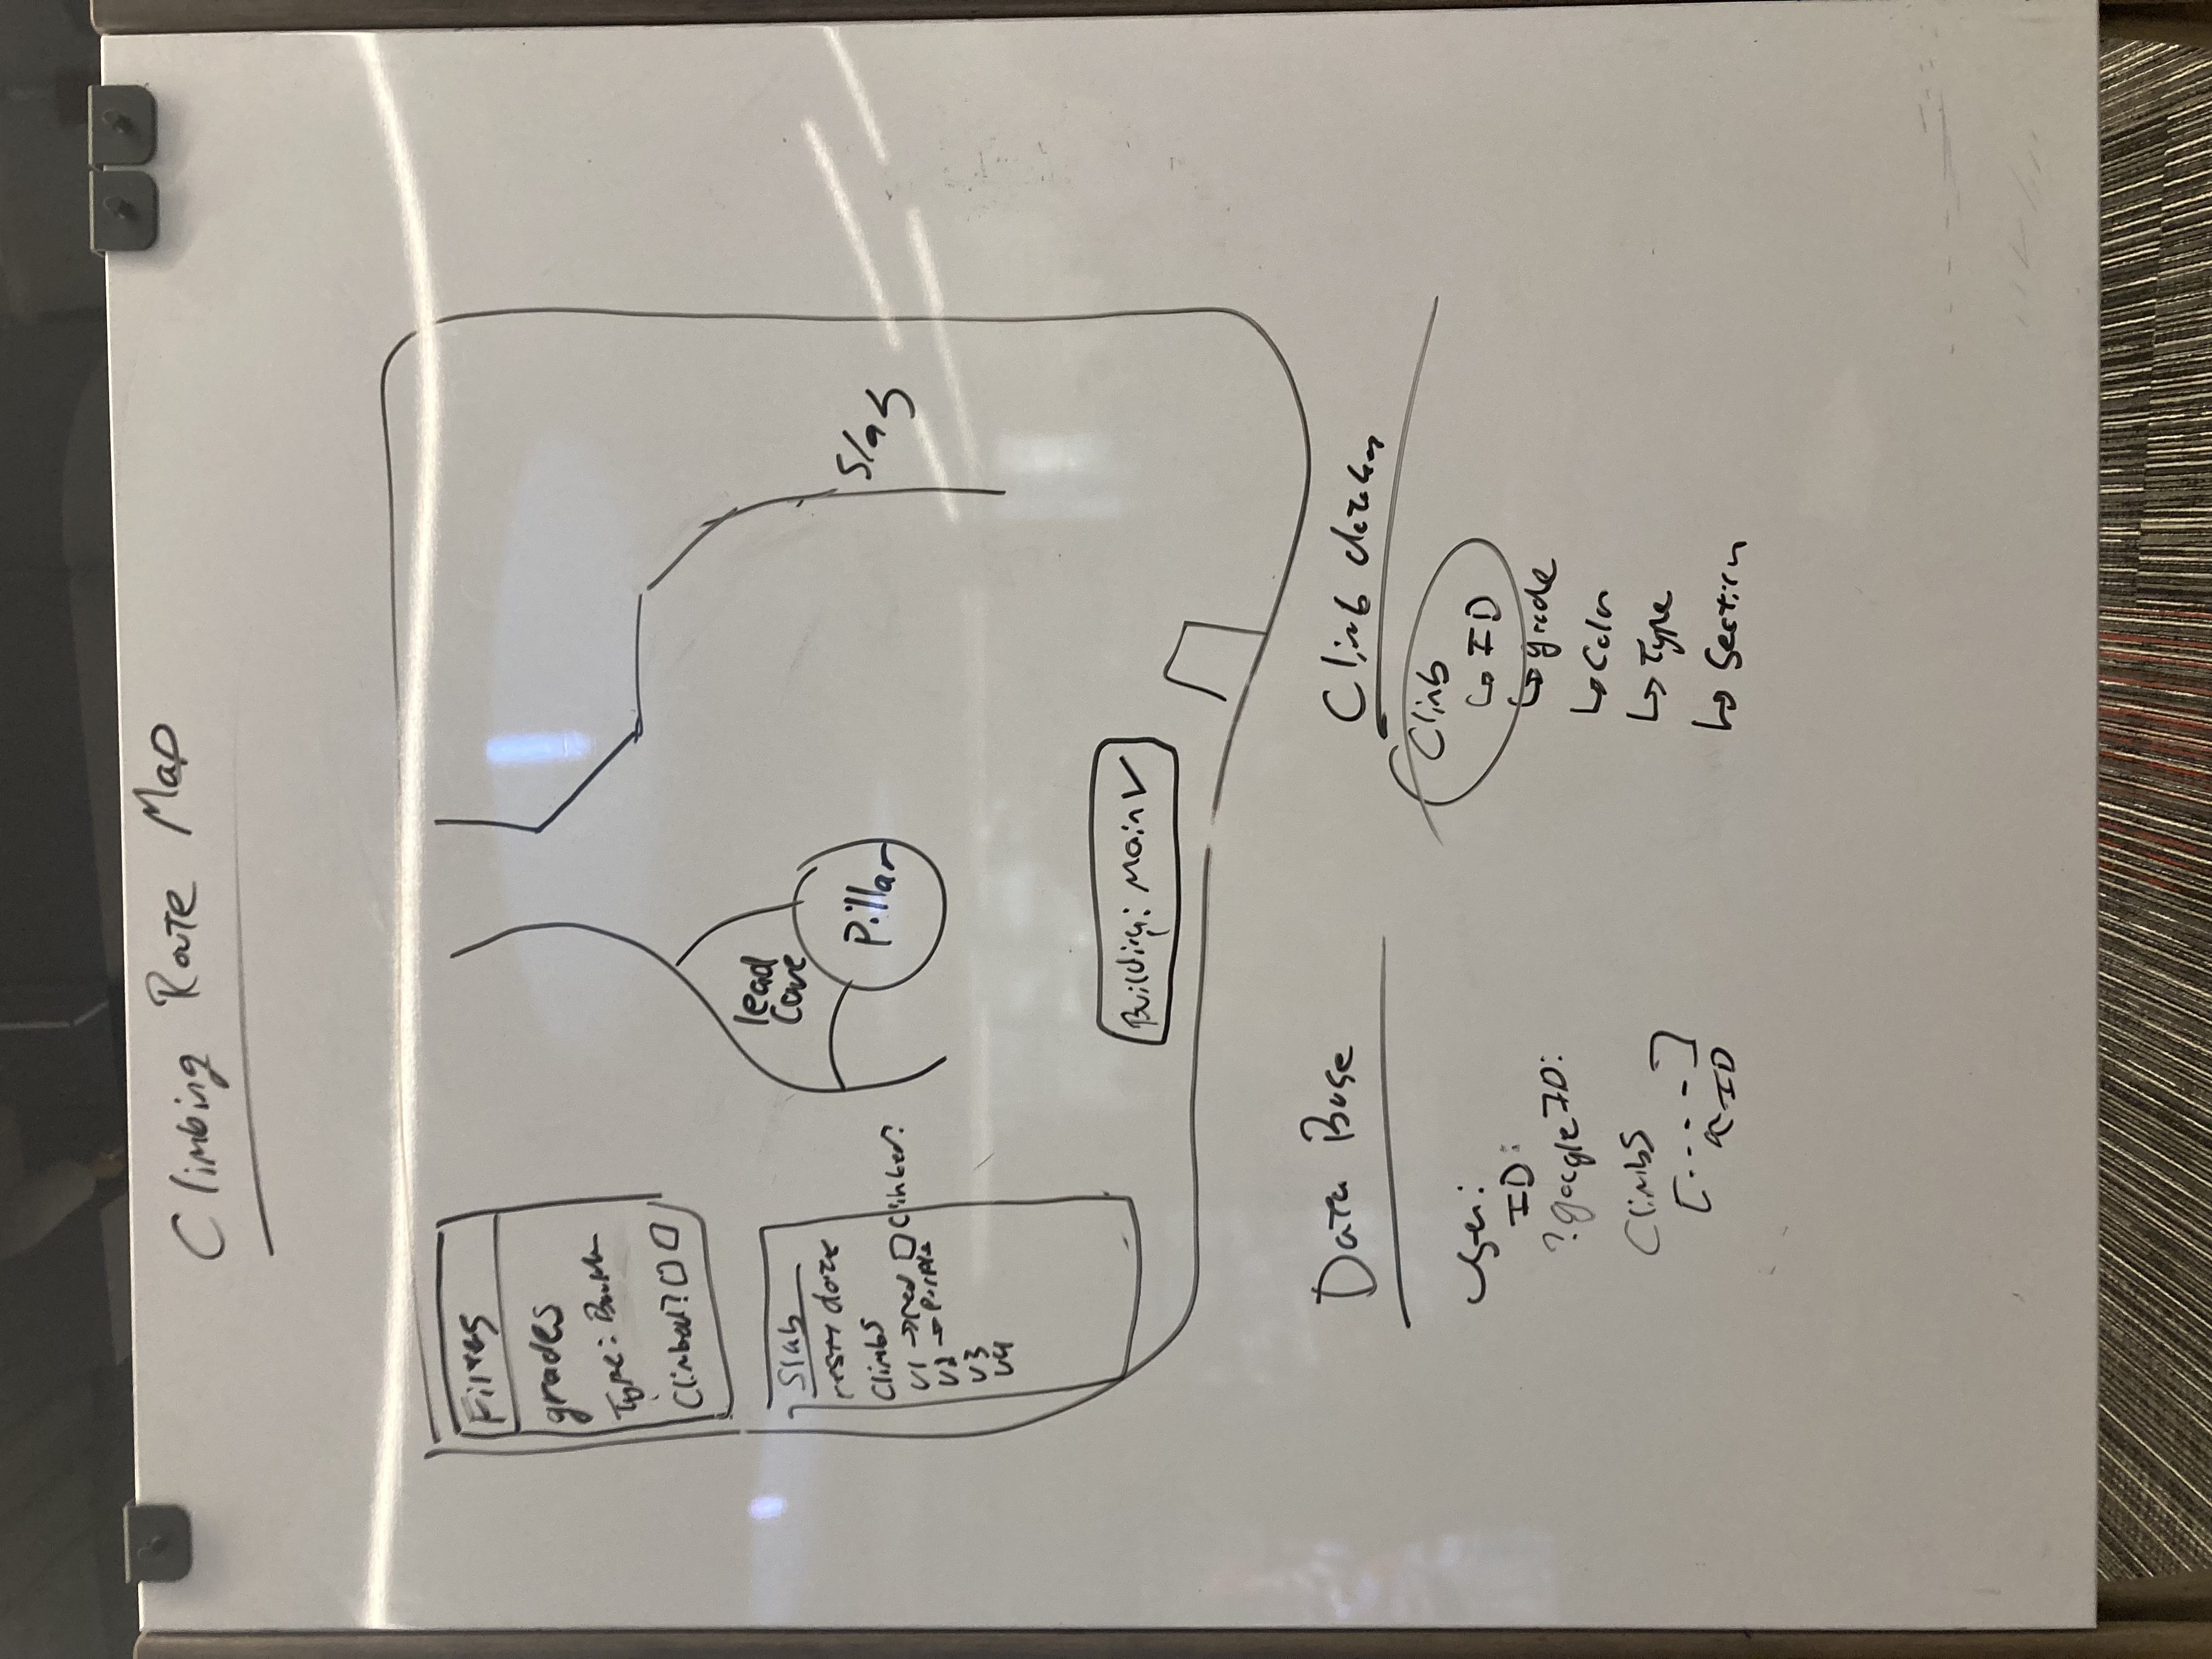 Climbing Route Map
Filtes
grades
Type: Bould
Climbed?
Slab
reset date
Climbs
V1 → red Climbed?
V2 → Purple
V3
V4
lead
Cave
Pillar
Slab
Building: Main
Data Base
User:
ID:
? google ID:
Climbs
[....]
ID
Climb
Climb
↳ ID
↳ grade
↳ Color
↳ Type
↳ Section